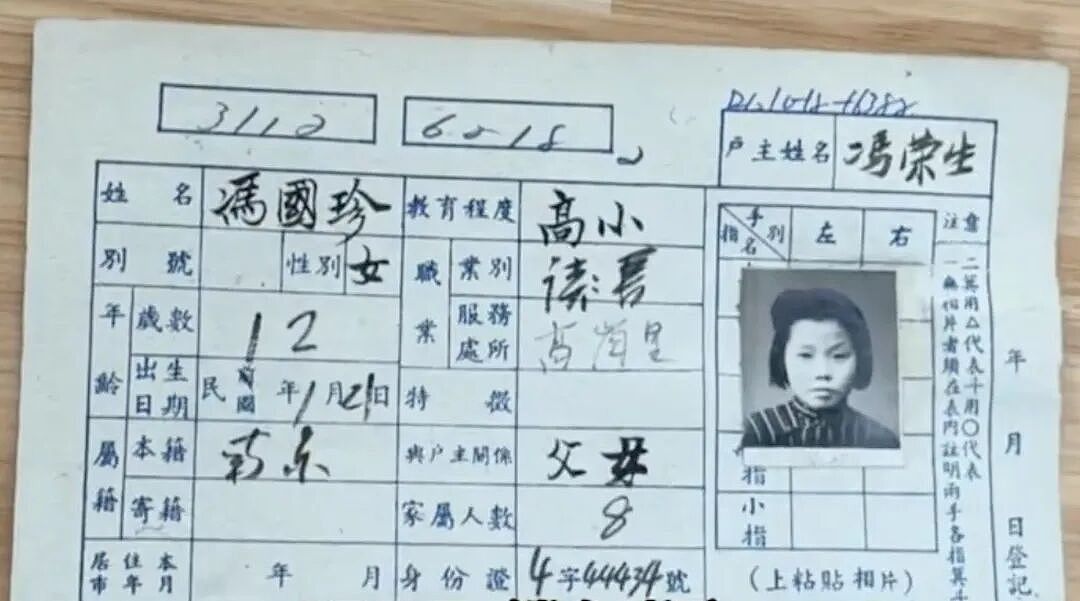 3112 62-18
户主姓名 馮荣生
姓名 馮國珍 教育程度 高小
別號 性別 女 職業 業別 读書
手別 指名 左 右
年齡 歲數 12 服務處所
出生日期 民國 年1月21日 特徵
屬籍 本籍 南京 與户主關係 父母
指
寄籍 家屬人數 8
小指
居住本市年月 年 月 身份證 4字44434號
(上粘貼相片)
注意
一無相片者須在表內註明兩手各指箕斗
二箕用△代表斗用〇代表
年月日登記